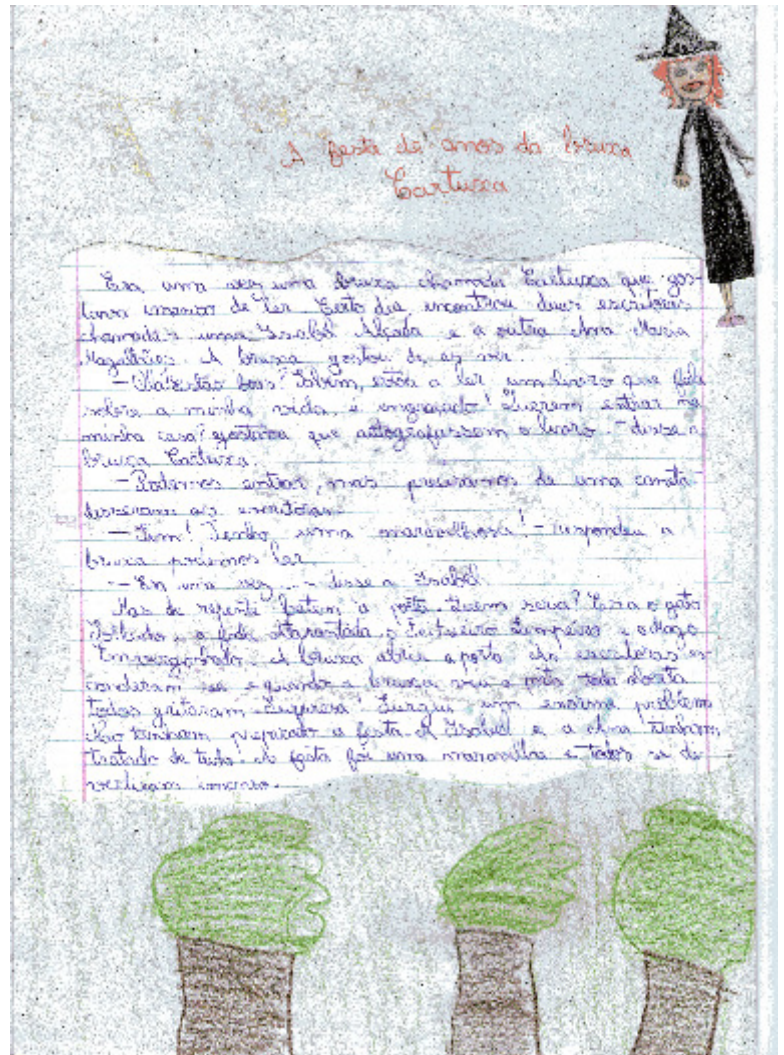 A festa de anos da bruxa
Cartuxa
Era uma vez uma bruxa chamada Cartuxa que gos-
tava imenso de ler. Certo dia encontrou duas escritoras
chamadas uma Isabel Alçada e a outra Ana Maria
Magalhães. A bruxa gostou de as ver.
— Olá! Estão boas? Sabem, estou a ler um livro que fala
sobre a minha vida, é engraçado! Querem entrar na
minha casa? gostava que autografassem o livro. - disse a
bruxa Cartuxa.
— Podemos entrar, mas precisamos de uma caneta -
disseram as escritoras.
— Sim! Tenho uma maravilhosa! - respondeu a
bruxa podemos ler
— Era uma vez... - disse a Isabel.
Mas de repente batem à porta. Quem seria? Era o gato
a fada o Feiticeiro e o Mago
Envergonhado. A bruxa abriu a porta. As escritoras es-
conderam-se e quando a bruxa viu a
todos gritaram Surpresa! Surgiu um enorme problema
Não tinham preparado a festa. A Isabel e a Ana tinham
tratado de tudo. A festa foi uma maravilha e todos se di-
vertiram imenso.